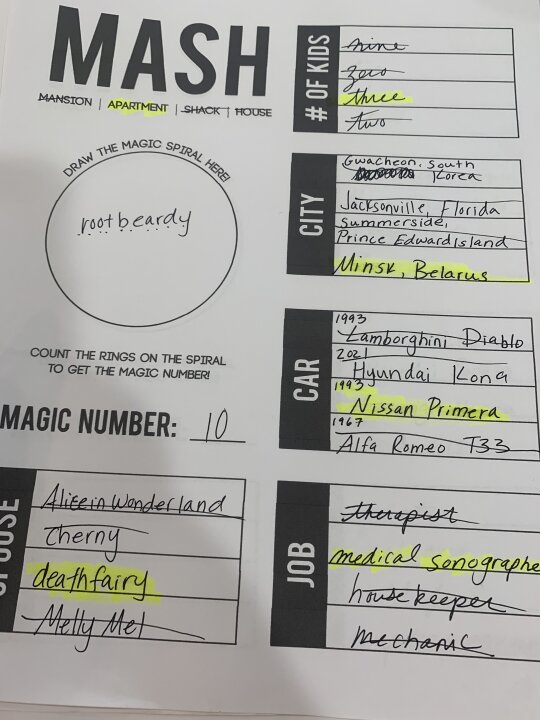 MASH
MANSION | APARTMENT | SHACK | HOUSE
DRAW THE MAGIC SPIRAL HERE!
rootbeardy
COUNT THE RINGS ON THE SPIRAL
TO GET THE MAGIC NUMBER!
MAGIC NUMBER: 10
# OF KIDS
nine
zero
three
two
CITY
Gwacheon, South
Korea
Jacksonville, Florida
Summerside,
Prince Edward Island
Minsk, Belarus
CAR
1993
Lamborghini Diablo
2021
Hyundai Kona
1993
Nissan Primera
1967
Alfa Romeo T33
SPOUSE
Alice in Wonderland
Cherny
deathfairy
Melly Mel
JOB
therapist
medical sonographe
housekeeper
mechanic